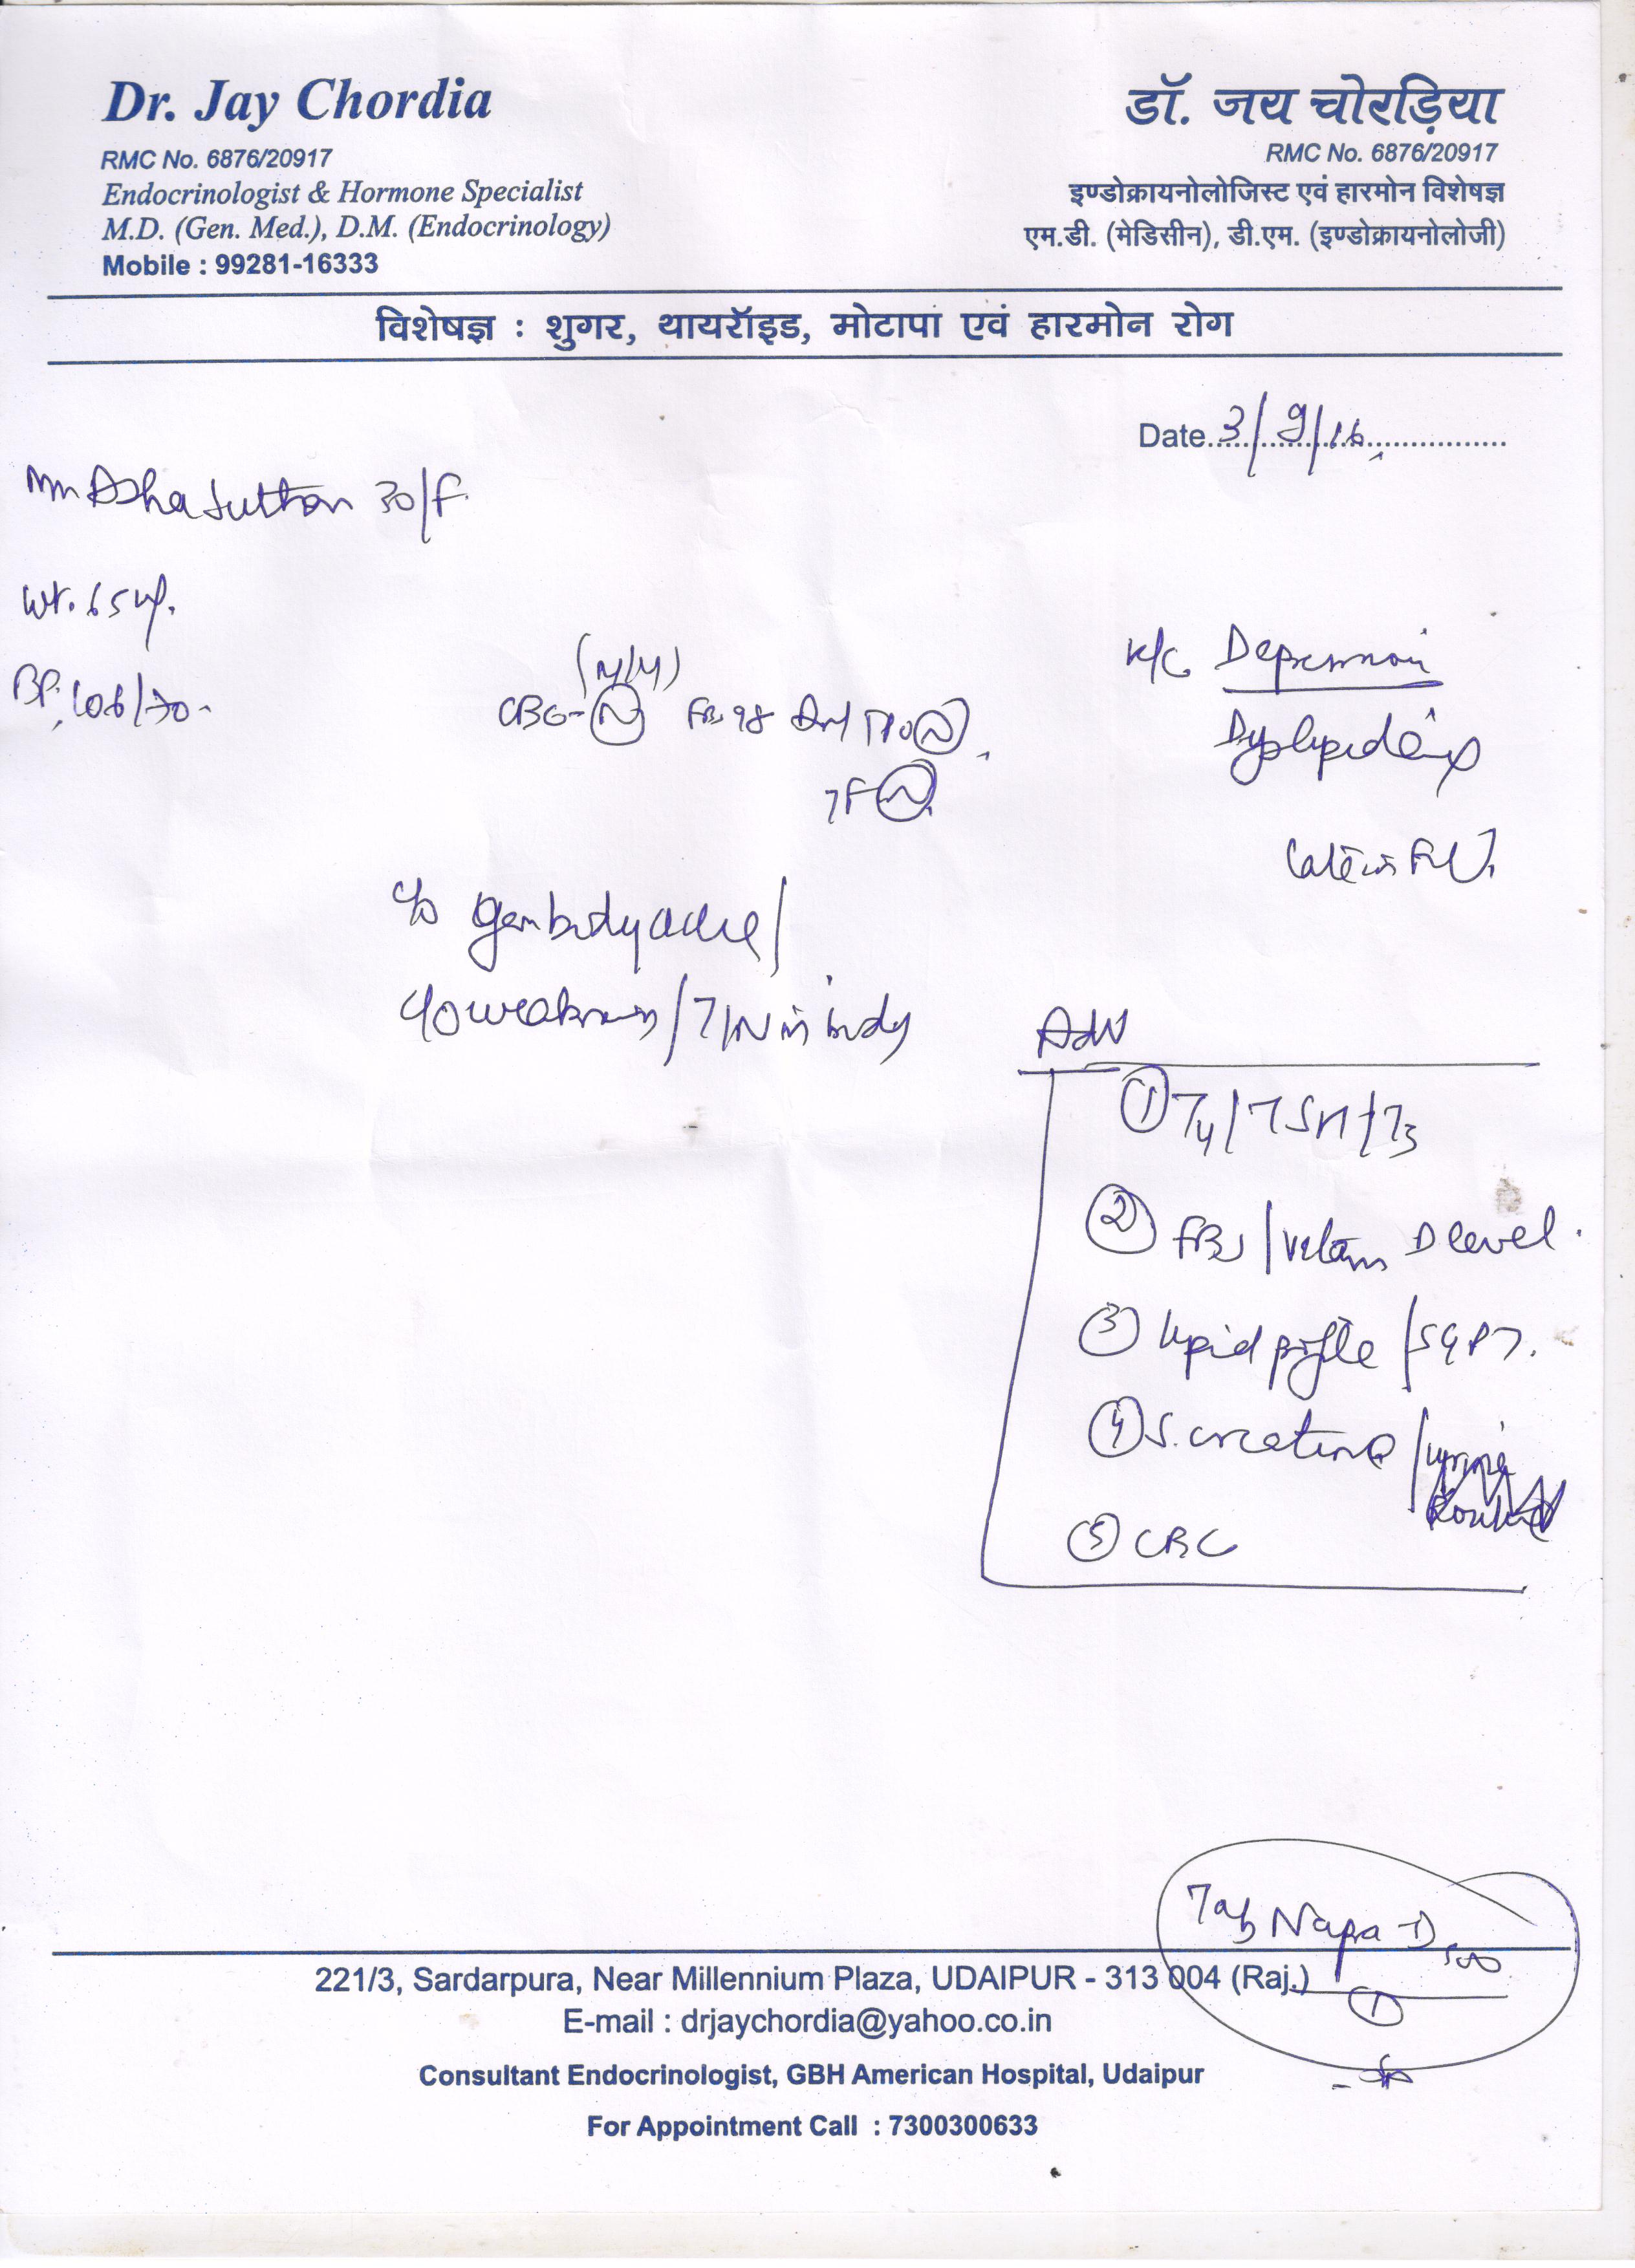 Dr. Jay Chordia
RMC No. 6876/20917
Endocrinologist & Hormone Specialist
M.D. (Gen. Med.), D.M. (Endocrinology)
Mobile : 99281-16333
डॉ. जय चोरड़िया
RMC No. 6876/20917
इण्डोक्रायनोलोजिस्ट एवं हारमोन विशेषज्ञ
एम.डी. (मेडिसीन), डी.एम. (इण्डोक्रायनोलोजी)
विशेषज्ञ : शुगर, थायरॉइड, मोटापा एवं हारमोन रोग
Date 3/9/16
Asha 30/F.
Wt. 65 kg.
BP. 106/70
K/C Depression
Dyslipidemia
Late in F/U.
(N/M)
CBG-N FBS 98 TPO N
TF N
c/o gen body ache/
c/o weakness/T/N in body
Adv
1 T4/TSH/T3
2 FBS/Vitamin D level.
3 lipid profile/SGPT.
4 S. creatinine/urine
Routine
5 CBC
Tab Napa-D 500
1
221/3, Sardarpura, Near Millennium Plaza, UDAIPUR - 313 004 (Raj.)
E-mail : drjaychordia@yahoo.co.in
Consultant Endocrinologist, GBH American Hospital, Udaipur
For Appointment Call : 7300300633